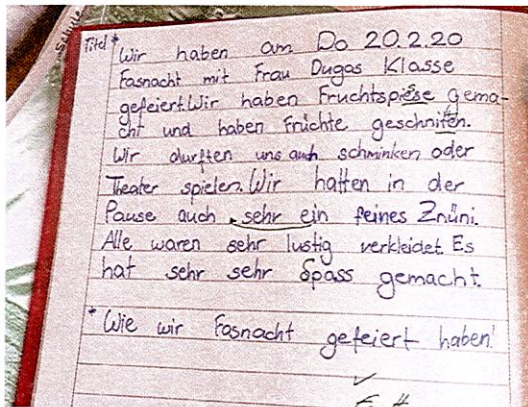 Schule
Titel *
Wir haben am Do 20.2.20
Fasnacht mit Frau Dugas Klasse
gefeiert. Wir haben Fruchtspiese gema-
cht und haben Früchte geschniten.
Wir durften uns auch schminken oder
Theater spielen. Wir hatten in der
Pause auch sehr ein feines Znüni.
Alle waren sehr lustig verkleidet. Es
hat sehr sehr Spass gemacht.
* Wie wir Fasnacht gefeiert haben!